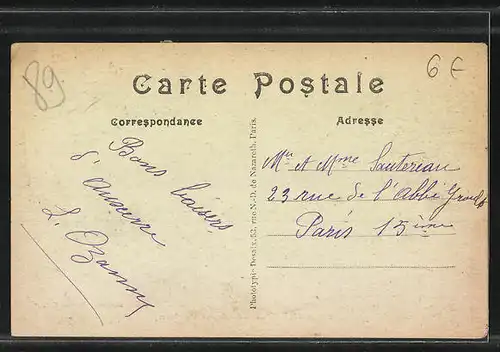 89
6 €
Carte Postale
Correspondance
Adresse
Bons baisers
d'Auxerre
L. Ozanne
Mr et Mme Sautereau
23 rue de l'Abbé Groult
Paris 15ème
Phototypie Desaix, 53, rue N.-D. de Nazareth, Paris.